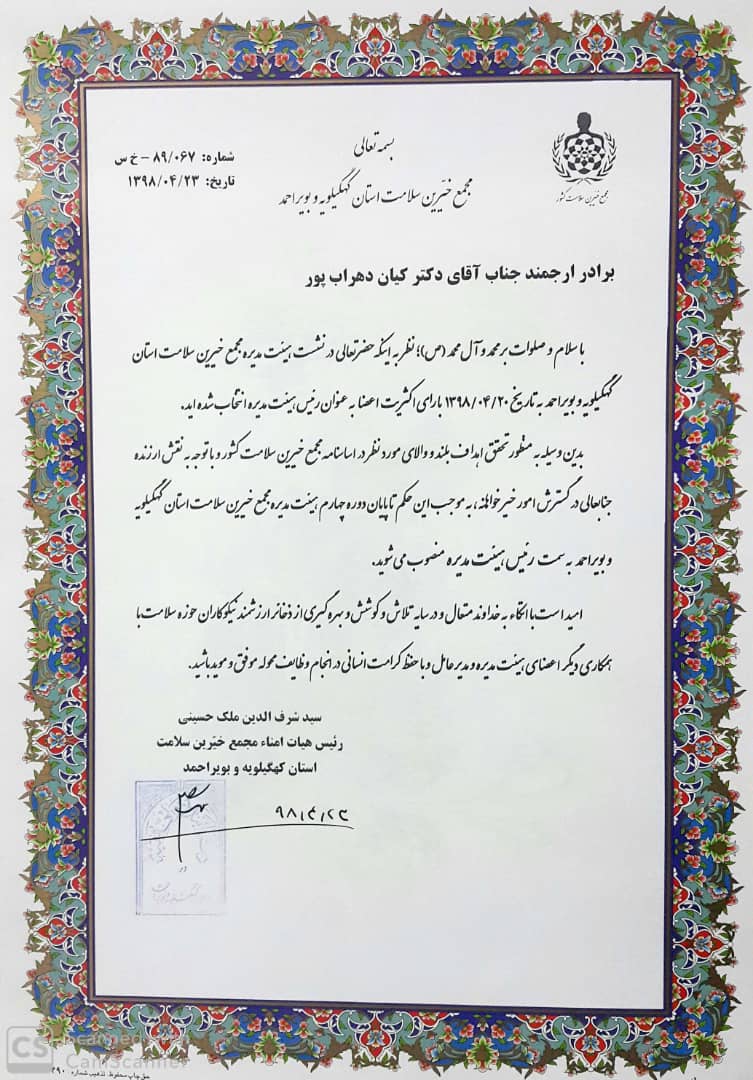 بسمه تعالی
مجمع خیّرین سلامت استان کهگیلویه و بویراحمد
شماره: ۸۹/۰۶۷ - خ س
تاریخ: ۱۳۹۸/۰۴/۲۳
مجمع خیرین سلامت کشور
برادر ارجمند جناب آقای دکتر کیان دهراب پور
با سلام و صلوات بر محمد و آل محمد (ص)؛ نظر به اینکه حضرتعالی در نشست هیئت مدیره مجمع خیرین سلامت استان
کهگیلویه و بویراحمد به تاریخ ۱۳۹۸/۰۴/۲۰ با رای اکثریت اعضا به عنوان رئیس هیئت مدیره انتخاب شده اید.
بدین وسیله به منظور تحقق اهداف بلند و والای مورد نظر در اساسنامه مجمع خیرین سلامت کشور و با توجه به نقش ارزنده
جنابعالی در گسترش امور خیرخواهانه، به موجب این حکم تا پایان دوره چهارم هیئت مدیره مجمع خیرین سلامت استان کهگیلویه
و بویراحمد به سمت رئیس هیئت مدیره منصوب می شوید.
امید است با اتکاء به خداوند متعال و در سایه تلاش و کوشش و بهره گیری از ذخائر ارزشمند نیکوکاران حوزه سلامت با
همکاری دیگر اعضای هیئت مدیره و مدیر عامل و با حفظ کرامت انسانی در انجام وظایف محوله موفق و موید باشید.
سید شرف الدین ملک حسینی
رئیس هیات امناء مجمع خیّرین سلامت
استان کهگیلویه و بویراحمد
۹۸/۴/۲۳
CS CamScanner
حق چاپ محفوظ. تذهیب شماره ۲۹۰